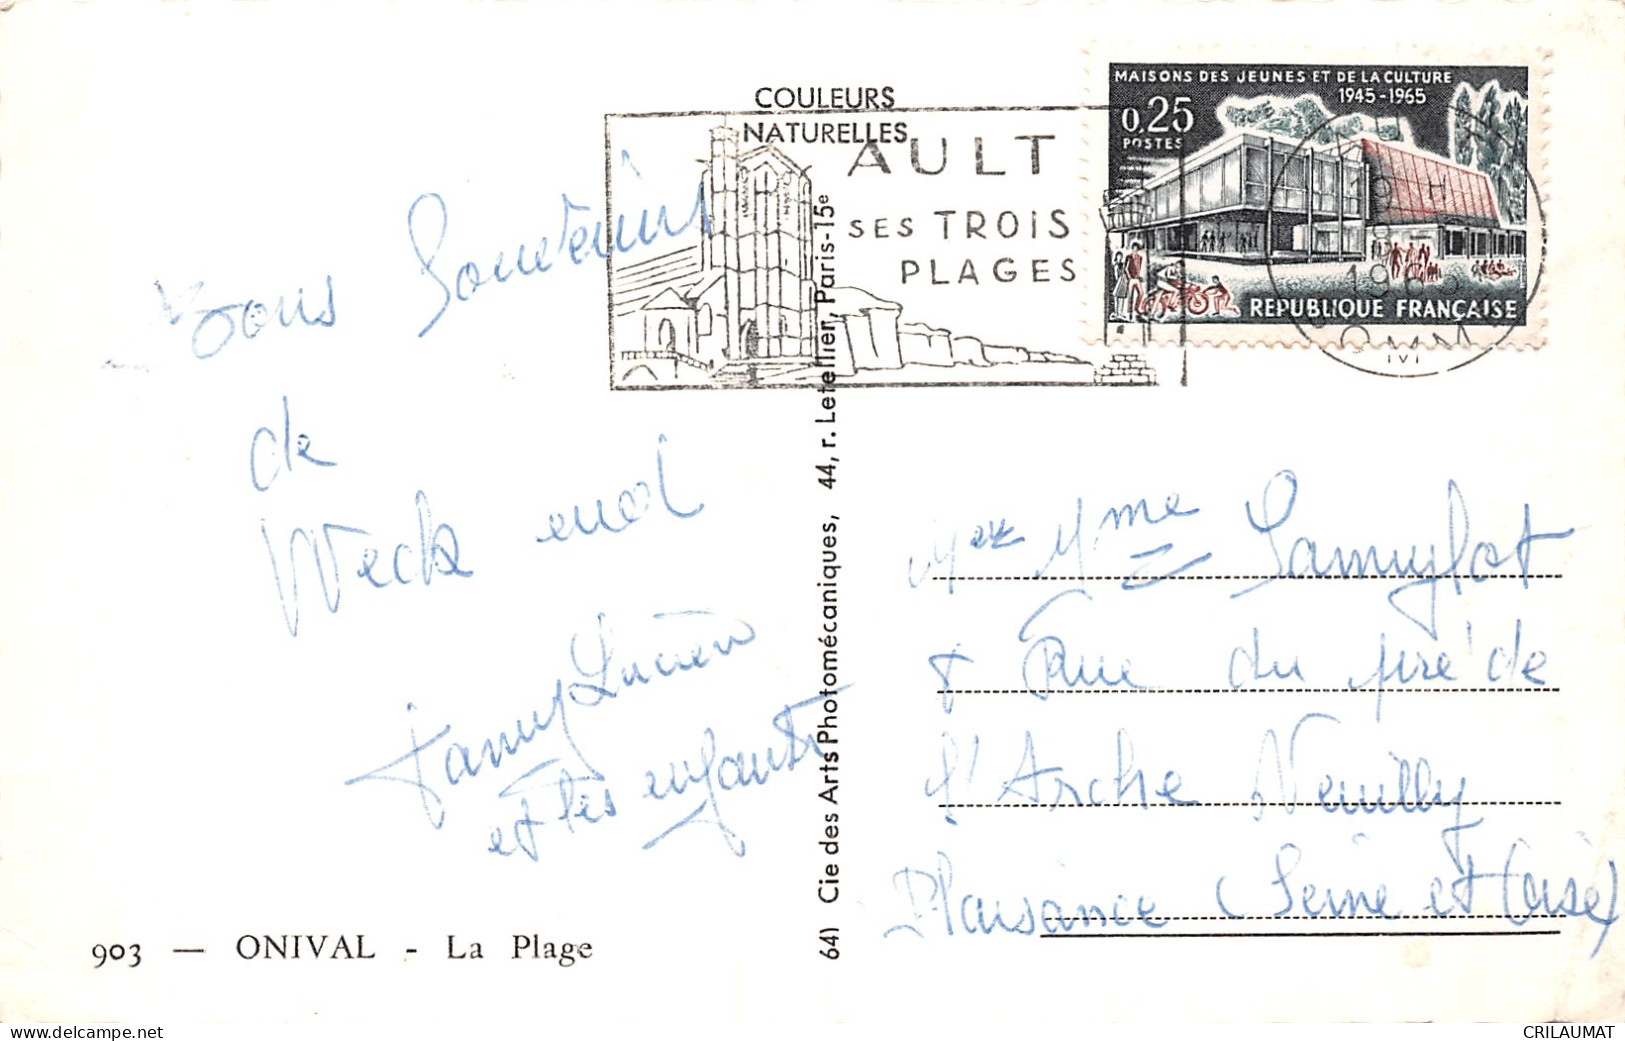 COULEURS
NATURELLES
AULT
SES TROIS
PLAGES
MAISONS DES JEUNES ET DE LA CULTURE
1945-1965
0,25
POSTES
REPUBLIQUE FRANÇAISE
Bons Souvenirs
de
Week end
Fanny Lucien
et les enfants
Mme
Rue du pré de
l'Arche Neuilly
Plaisance (Seine et Oise)
903 — ONIVAL - La Plage
64) Cie des Arts Photomécaniques, 44, r. Letellier, Paris-15e
www.delcampe.net
CRILAUMAT